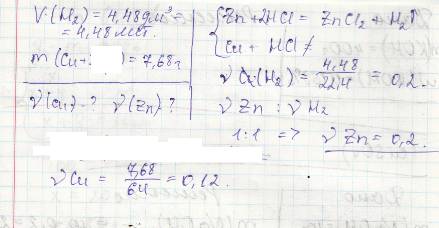 V(H₂) = 4,48 дм³ =
= 4,48 мест.
m(Cu+ ) = 7,68 г
ν(Cu) - ? ν(Zn) - ?
{Zn + 2HCl = ZnCl₂ + H₂↑
Cu + HCl ≠
ν (H₂) = 4,48/22,4 = 0,2.
ν Zn : ν H₂
1:1 => ν Zn = 0,2.
ν Cu = 7,68/64 = 0,12.